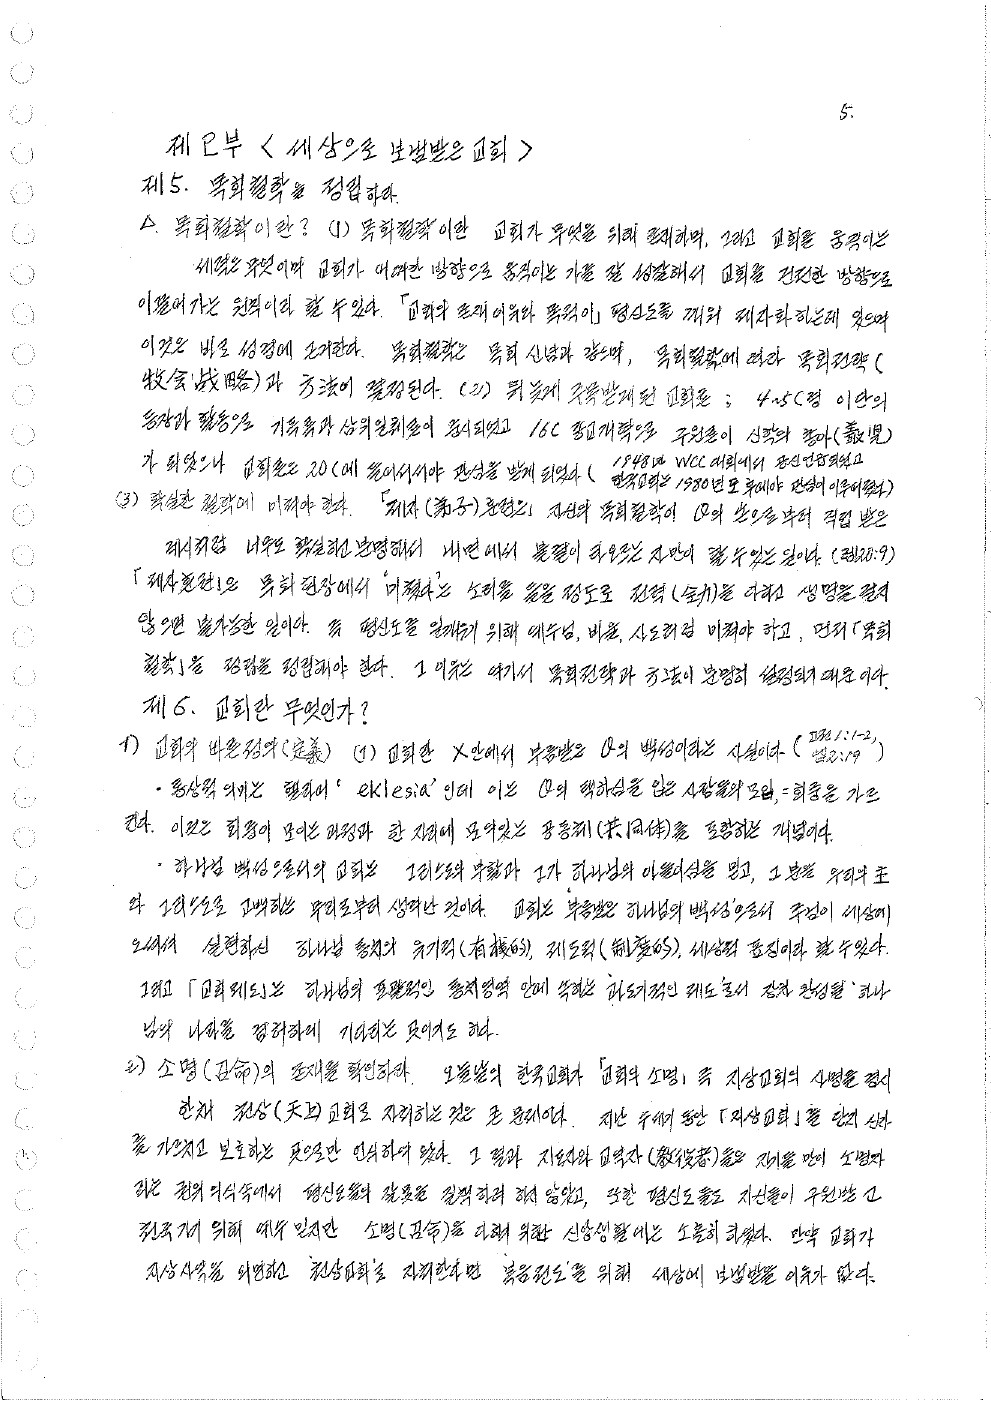 5.
제 2부 < 세상으로 보냄받은 교회 >
제5. 목회철학을 정립하라.
△. 목회철학이란? (1) 목회철학이란 교회가 무엇을 위해 존재하며, 그리고 교회를 움직이는
세력은 무엇이며 교회가 어떠한 방향으로 움직이는 가를 잘 성찰해서 교회를 건전한 방향으로
이끌어 가는 원력이라 할 수 있다. 「교회의 존재 이유와 목적이」 평신도를 깨워 제자화 하는데 있으며
이것은 바로 성경에 근거한다. 목회철학은 목회 신념과 같으며, 목회철학에 따라 목회전략 (
牧会战略)과 方法이 결정된다. (2) 뒤늦게 주목받게 된 교회론 ; 4~5C경 이단의
등장과 활동으로 기독론과 삼위일체론이 중시되었고 16C 종교개혁으로 구원론이 신학의 총아(寵児)
가 되었으나 교회론은 20C에 들어서서야 관심을 받게 되었다 ( 1948년 WCC 대회에서
한국교회는 1980년도 후에야 관심이 이루어졌다)
(3) 확실한 철학에 미쳐야 한다. 「제자(弟子)훈련은」 자신의 목회철학이 θ의 손으로부터 직접 받은
계시처럼 너무도 확실하고 분명해서 내면에서 불길이 타오르는 자만이 할 수 있는 일이다. (렘20:9)
「제자훈련」은 목회 현장에서 '미쳤다'는 소리를 들을 정도로 전력(全力)을 다하고 생명을 걸지
않으면 불가능한 일이다. 즉 평신도를 일깨우기 위해 예수님, 바울, 사도처럼 미쳐야 하고, 먼저 「목회
철학」을 정립을 정립해야 한다. 그 이유는 여기서 목회전략과 方法이 분명히 설정되기 때문이다.
제 6. 교회란 무엇인가?
1) 교회의 바른 정의(定義) (1) 교회란 X안에서 부름받은 θ의 백성이라는 사실이다 ( 고전1:1-2,
엡2:19 )
· 통상적 의미는 헬라어 'eklesia' 인데 이는 θ의 택하심을 입은 사람들의 모임, = 회중을 가르
킨다. 이것은 회중이 모이는 과정과 한 자리에 모여있는 공동체(共同体)를 포함하는 개념이다.
· 하나님 백성으로서의 교회는 그리스도의 부활과 그가 하나님의 아들이심을 믿고, 그 분을 우리의 主
와 그리스도로 고백하는 무리로부터 생겨난 것이다. 교회는 '부름받은 하나님의 백성'으로서 주님이 세상에
오셔서 실현하신 하나님 통치의 유기적(有機的), 제도적(制度的), 세상적 표징이라 할 수 있다.
그리고 「교회제도」는 하나님의 포괄적인 통치영역 안에 속하는 '과도기적인 제도'로서 장차 완성될 '하나
님의 나라'를 겸허하게 기다리는 것이기도 하다.
2) 소명(召命)의 존재를 확인하라. 오늘날의 한국교회가 「교회의 소명」 즉 지상교회의 사명을 경시
한채 천상(天上)교회로 자처하는 것은 큰 문제이다. 지난 수세기 동안 「지상교회」를 단지 신자
를 가르치고 보호하는 곳으로만 인식하여 왔다. 그 결과 지도자와 교역자(敎役者)들은 자기들 만이 소명자
라는 권위 의식속에서 평신도들의 잘못된 질책하려 하지 않았고, 또한 평신도들도 자신들이 구원받고
천국가기 위해 예수 믿지만 소명(召命)을 다하기 위한 신앙생활에는 소홀히 하였다. 만약 교회가
지상사역을 외면하고 '천상교회'로 자처한다면 '복음전도'를 위해 세상에 보냄받을 이유가 없다.